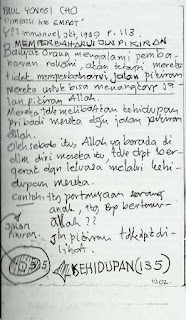 PAUL YONGGI CHO
DIMENSI KE EMPAT,
Yay. Immanuel Jkt, 1989, P. 113
MEMPERBAHARUI JLN PIKIRAN
Banyak orang mengalami pemba-
haruan rohani, akan tetapi mereka
tidak memperbaharui jalan pikiran
mereka untuk bisa menangkap ja-
lan pikiran Allah.
Mereka tdk melibatkan kehidupan
pribadi mereka dgn jalan pikiran
Allah.
Oleh sebab itu, Allah yg berada di
dlm diri mereka itu, tdk dpt ber-
gerak dgn leluasa melalui kehi-
dupan mereka.
Contoh: Ttg pertanyaan seorang
anak, ttg, Bp bertemu
Allah ??
Jln pikiran tdk dpt di-
lihat.
Jalan
Pikiran
KEHIDUPAN (135)